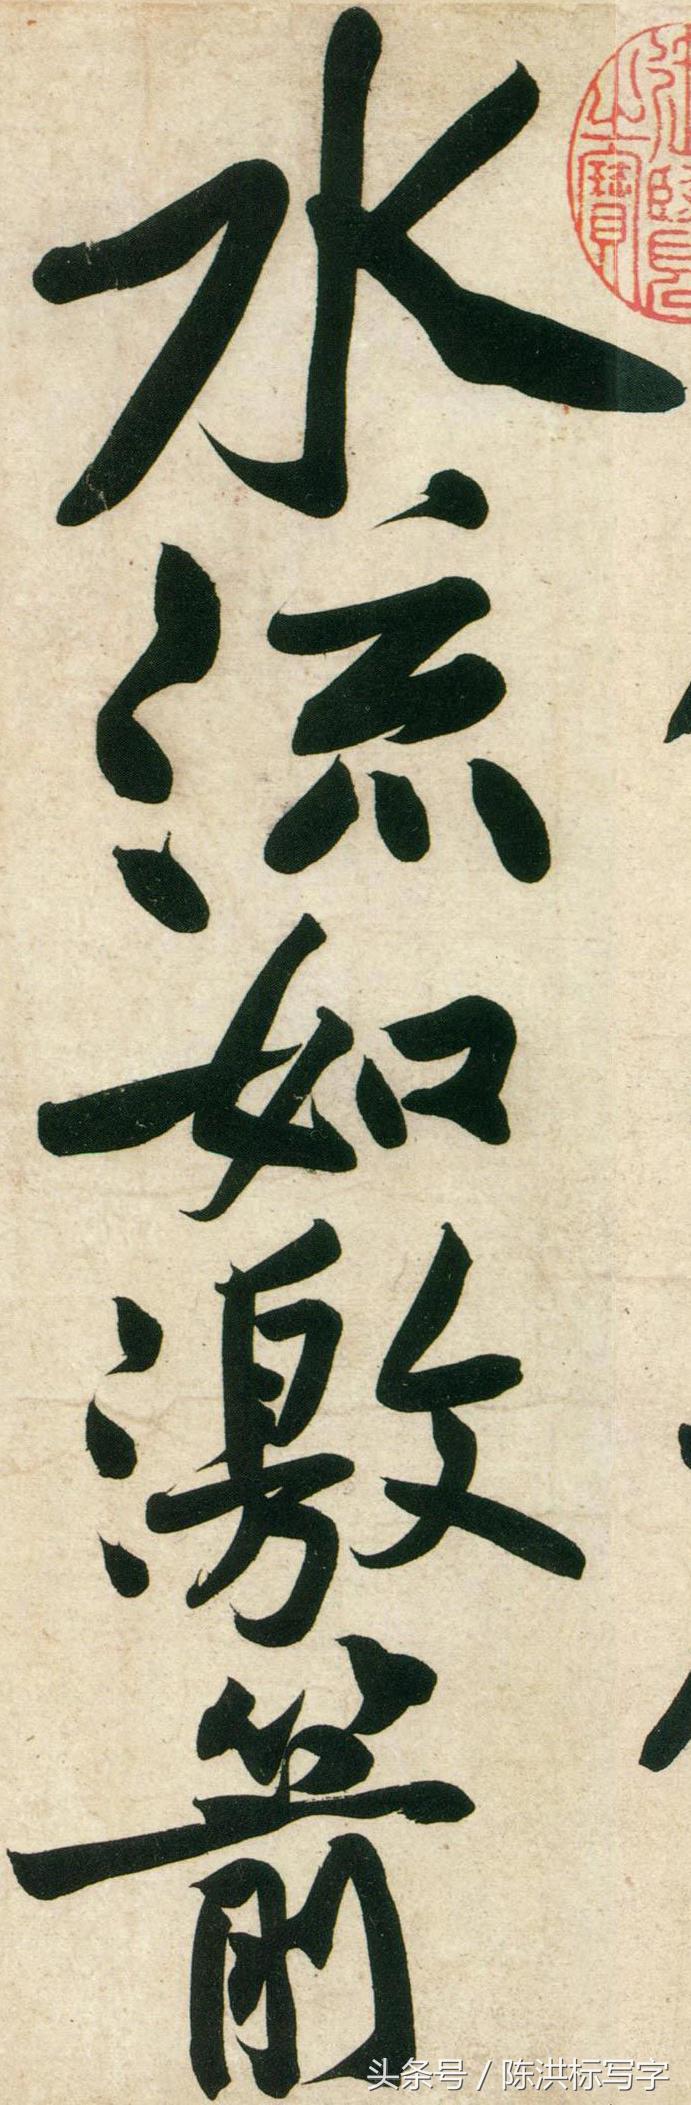 水流如激箭
头条号 / 陈洪标写字